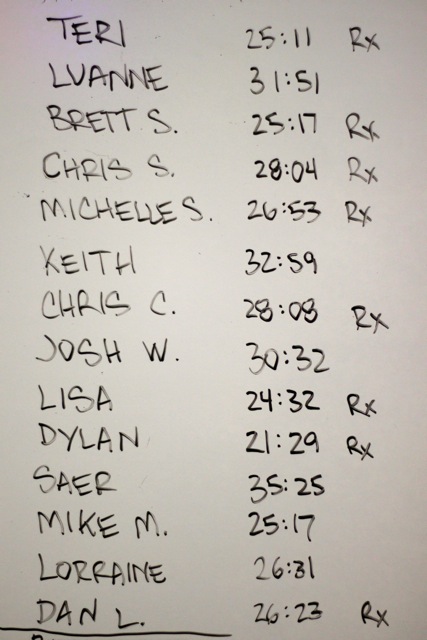 TERI 25:11 Rx
LUANNE 31:51
BRETT S. 25:17 Rx
CHRIS S. 28:04 Rx
MICHELLE S. 26:53 Rx
KEITH 32:59
CHRIS C. 28:08 Rx
JOSH W. 30:32
LISA 24:32 Rx
DYLAN 21:29 Rx
SAER 35:25
MIKE M. 25:17
LORRAINE 26:31
DAN L. 26:23 Rx